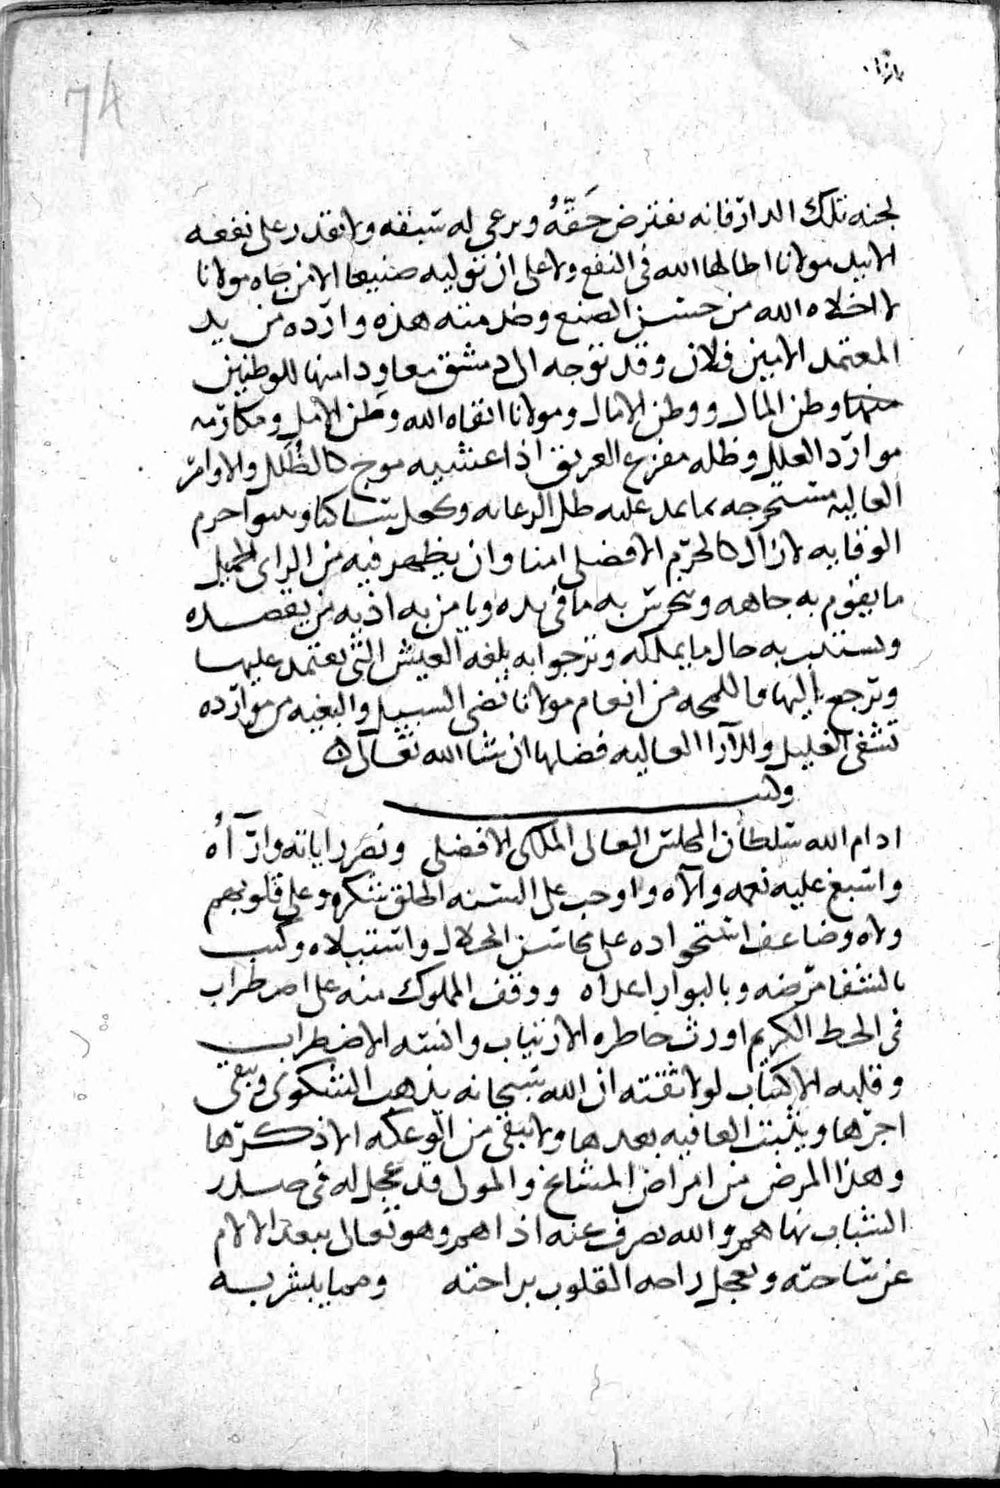 74
لجنه تلك الدار فانه يفترض حَقّهُ ويرعى له سبقه ولا يقدر على نفعه
الا بيد مولانا اطالها الله فى النفع ولا على ان توليه صنيعا الا من جاه مولانا
لا اخلاه الله من حسن الصنع وخدمته هذه وارده من يد
المعتمد الامين فلان وقد توجه الى دمشق معاودا منها للوطنين
منهما وطن المال ووطن الامال ومولانا ابقاه الله وطن الامل ومكارمه
موارد العلل وظله مفزع الغريق اذا غشيه موج كالظُلَل والاوامر
العاليه مستخرجه بما يمد عليه ظل الرعايه وكحل ساكنا حرم
الوقايه لازال كالحرم الافضلى امنا وان يظهر فيه من الراى الجميل
ما يقوم به جاهه ويحرس به ما فى يده ويامن به اذيه من يقصده
ويستتب به حال ما يملكه وترجوا به بلغه العيش التى يعتمد عليها
ويرجع اليها فاللمحه من انعام مولانا تضى السبيل والبغيه من موارده
تشفى الغليل وللآرا العاليه فضلها ان شا الله تعالى
وكتب
ادام الله سلطان المجلس العالى الملكى الافضلى ونصر راياته وارآهُ
واسبغ عليه نعمه وآلاه واوجب على السنه الخلق شكره وعلى قلوبهم
ولاه وضاعف استحواده على محاسن الخلال واستيلاه وكتب
بالشفا مرضه وبالبوار اعداه ووقف المملوك منه على اضطراب
فى الخط الكريم اورث خاطره الارتياب وانسته الاضطراب
وقلبه الاكتياب لولا ثقته ان الله سبحانه يذهب الشكوى ويبقى
اجرها ويثبت العافيه بعدها ولا يبقى من الوعكه الا ذكرها
وهذا المرض من امراض المشايخ والمولى قد عجل له فى صدر
الشباب نهاهم والله يصرف عنه اذاهم وهو تعالى يبعد الالام
عن ساحته ويعجل راحه القلوب براحته ومما يبشر به